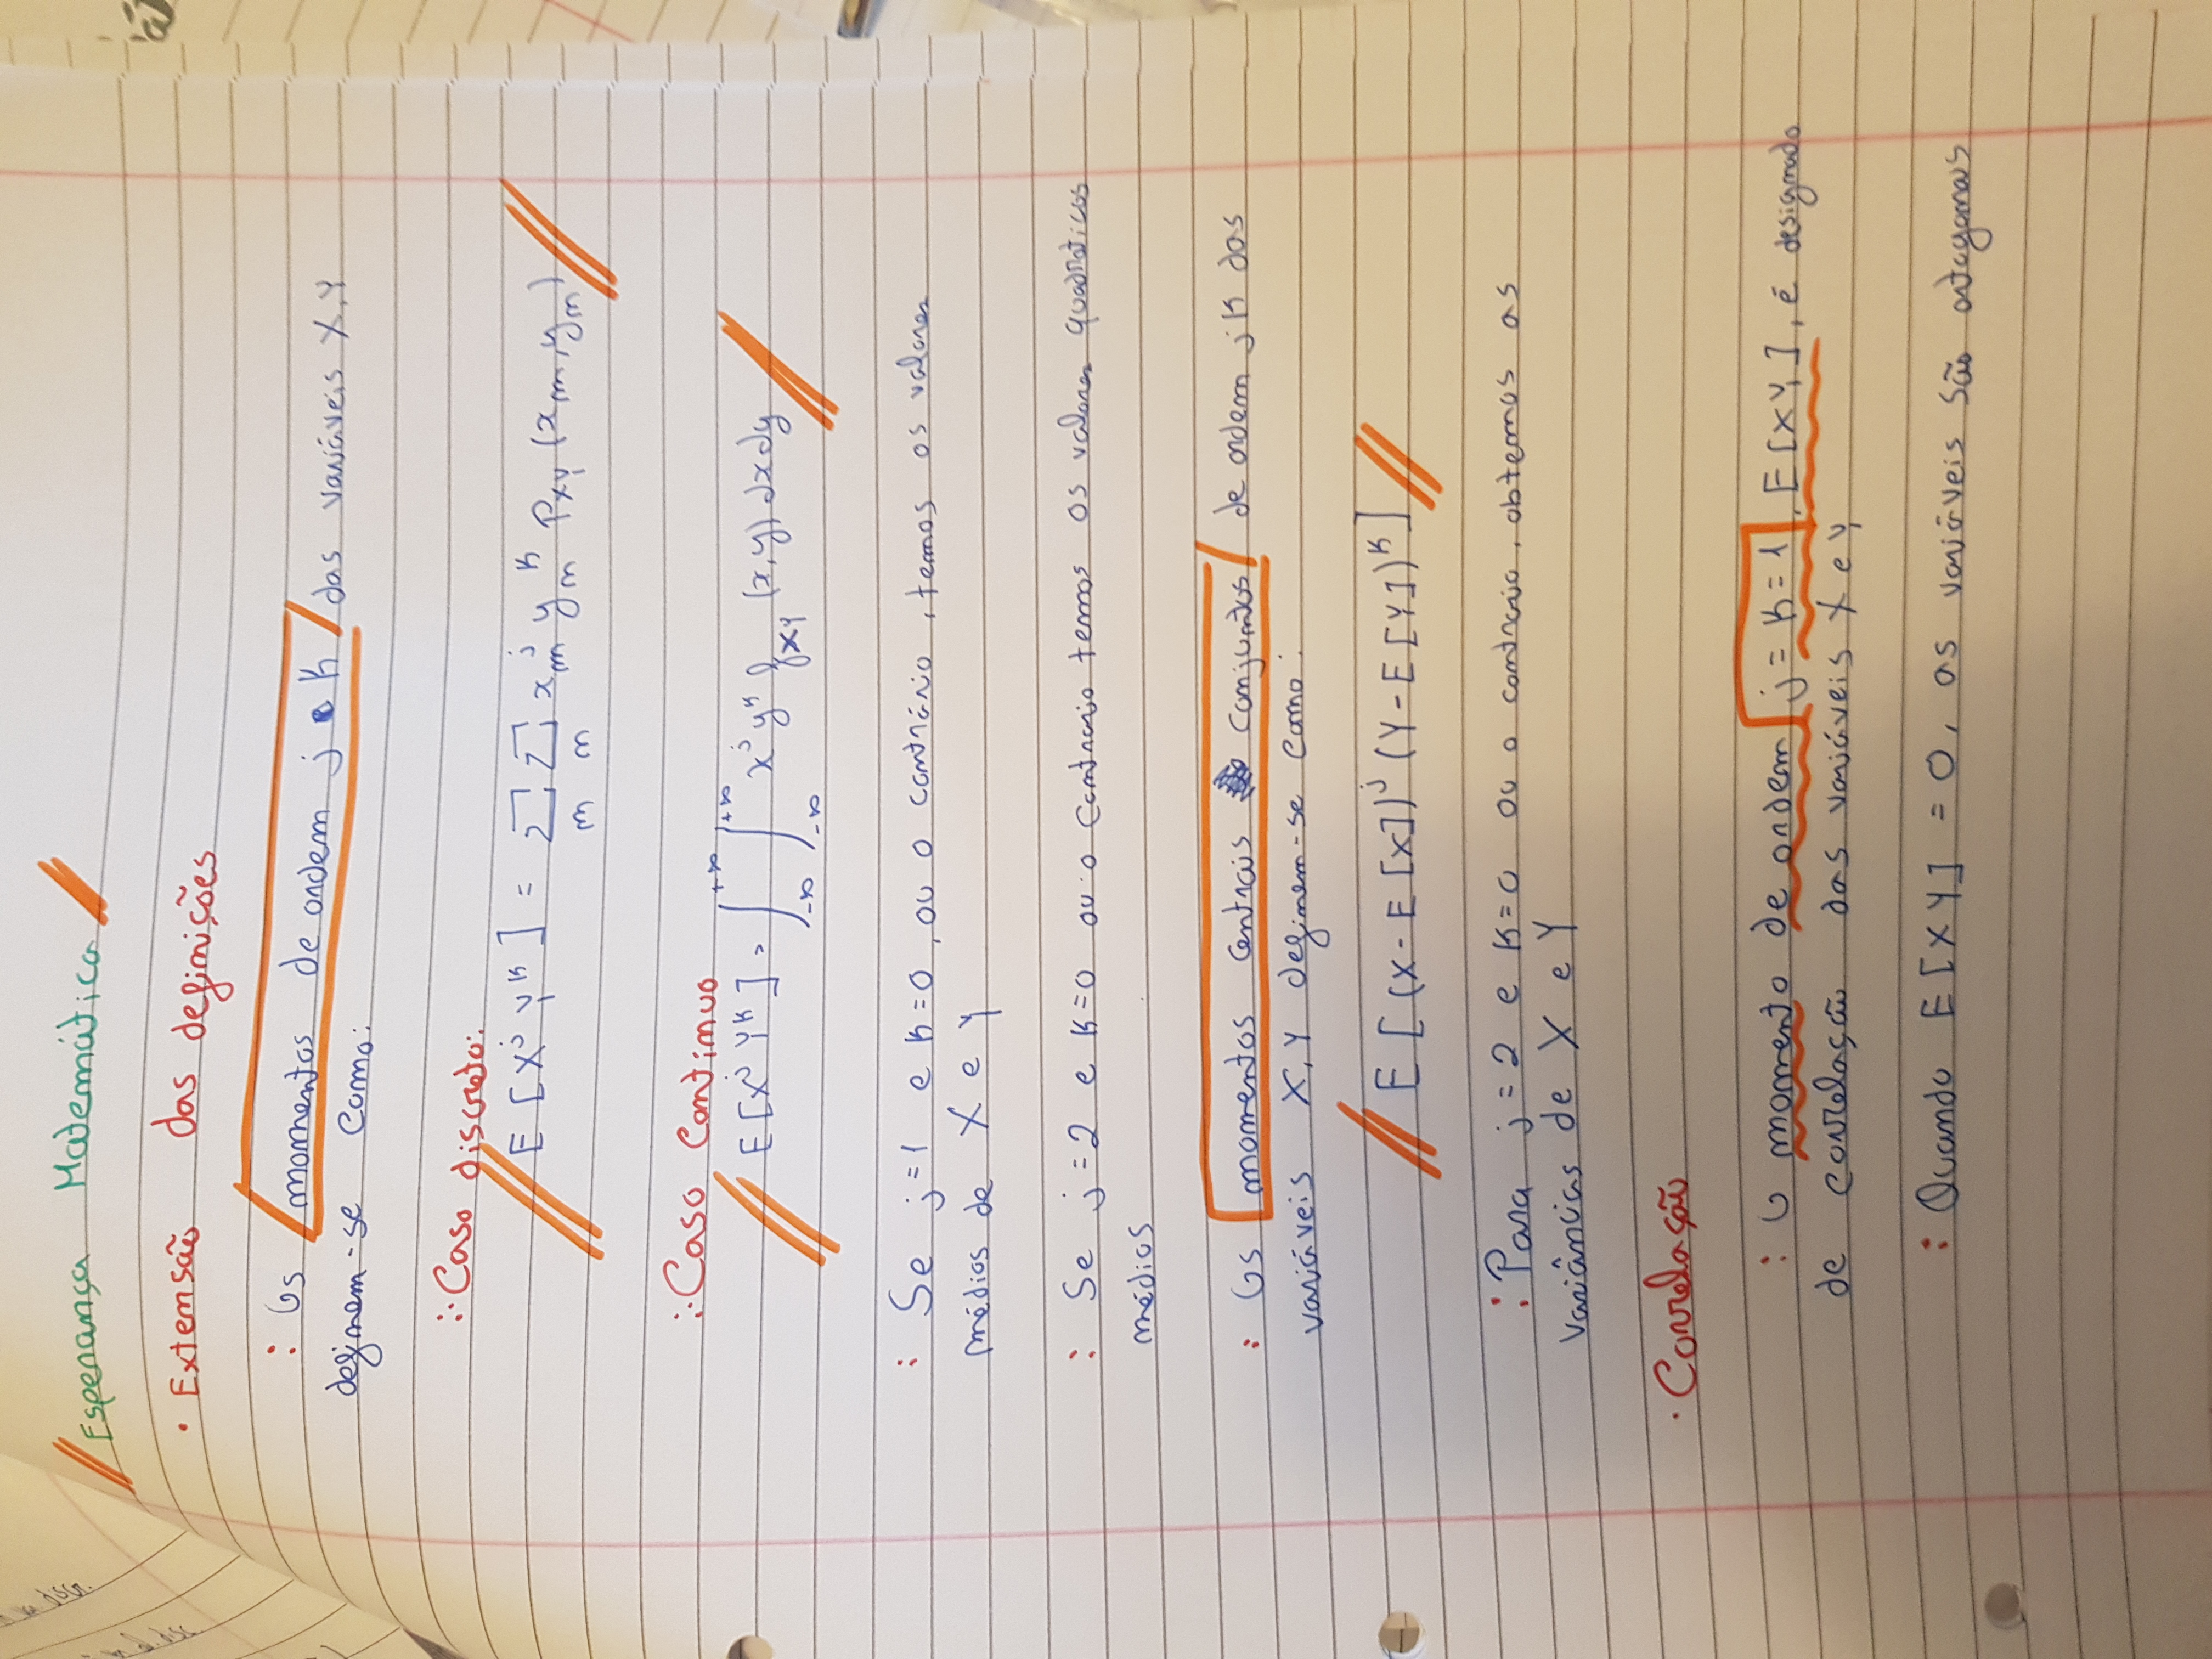 Esperança Matemática
• Extensão das definições
: Os momentos de ordem j k das variáveis X,Y
definem-se como:
∴ Caso discreto:
E [X^j Y^k] = Σ_m Σ_n x_m^j y_n^k P_XY (x_m, y_n)
∴ Caso Contínuo
E [X^j Y^k] = ∫_-∞^+∞ ∫_-∞^+∞ x^j y^k f_XY (x,y) dx dy
: Se j=1 e k=0, ou o contrário, temos os valores
médios de X e Y
: Se j=2 e k=0 ou o contrario temos os valores quadraticos
médios
: Os momentos centrais conjuntos de ordem jk das
variáveis X,Y definem-se como:
E [(X-E[X])^j (Y-E[Y])^k]
: Para j=2 e k=0 ou o contrario, obtemos as
variâncias de X e Y
• Correlação
: O momento de ordem j=k=1, E[XY], é designado
de correlação das variáveis X e Y
: Quando E[XY] = 0, as variáveis são ortogonais